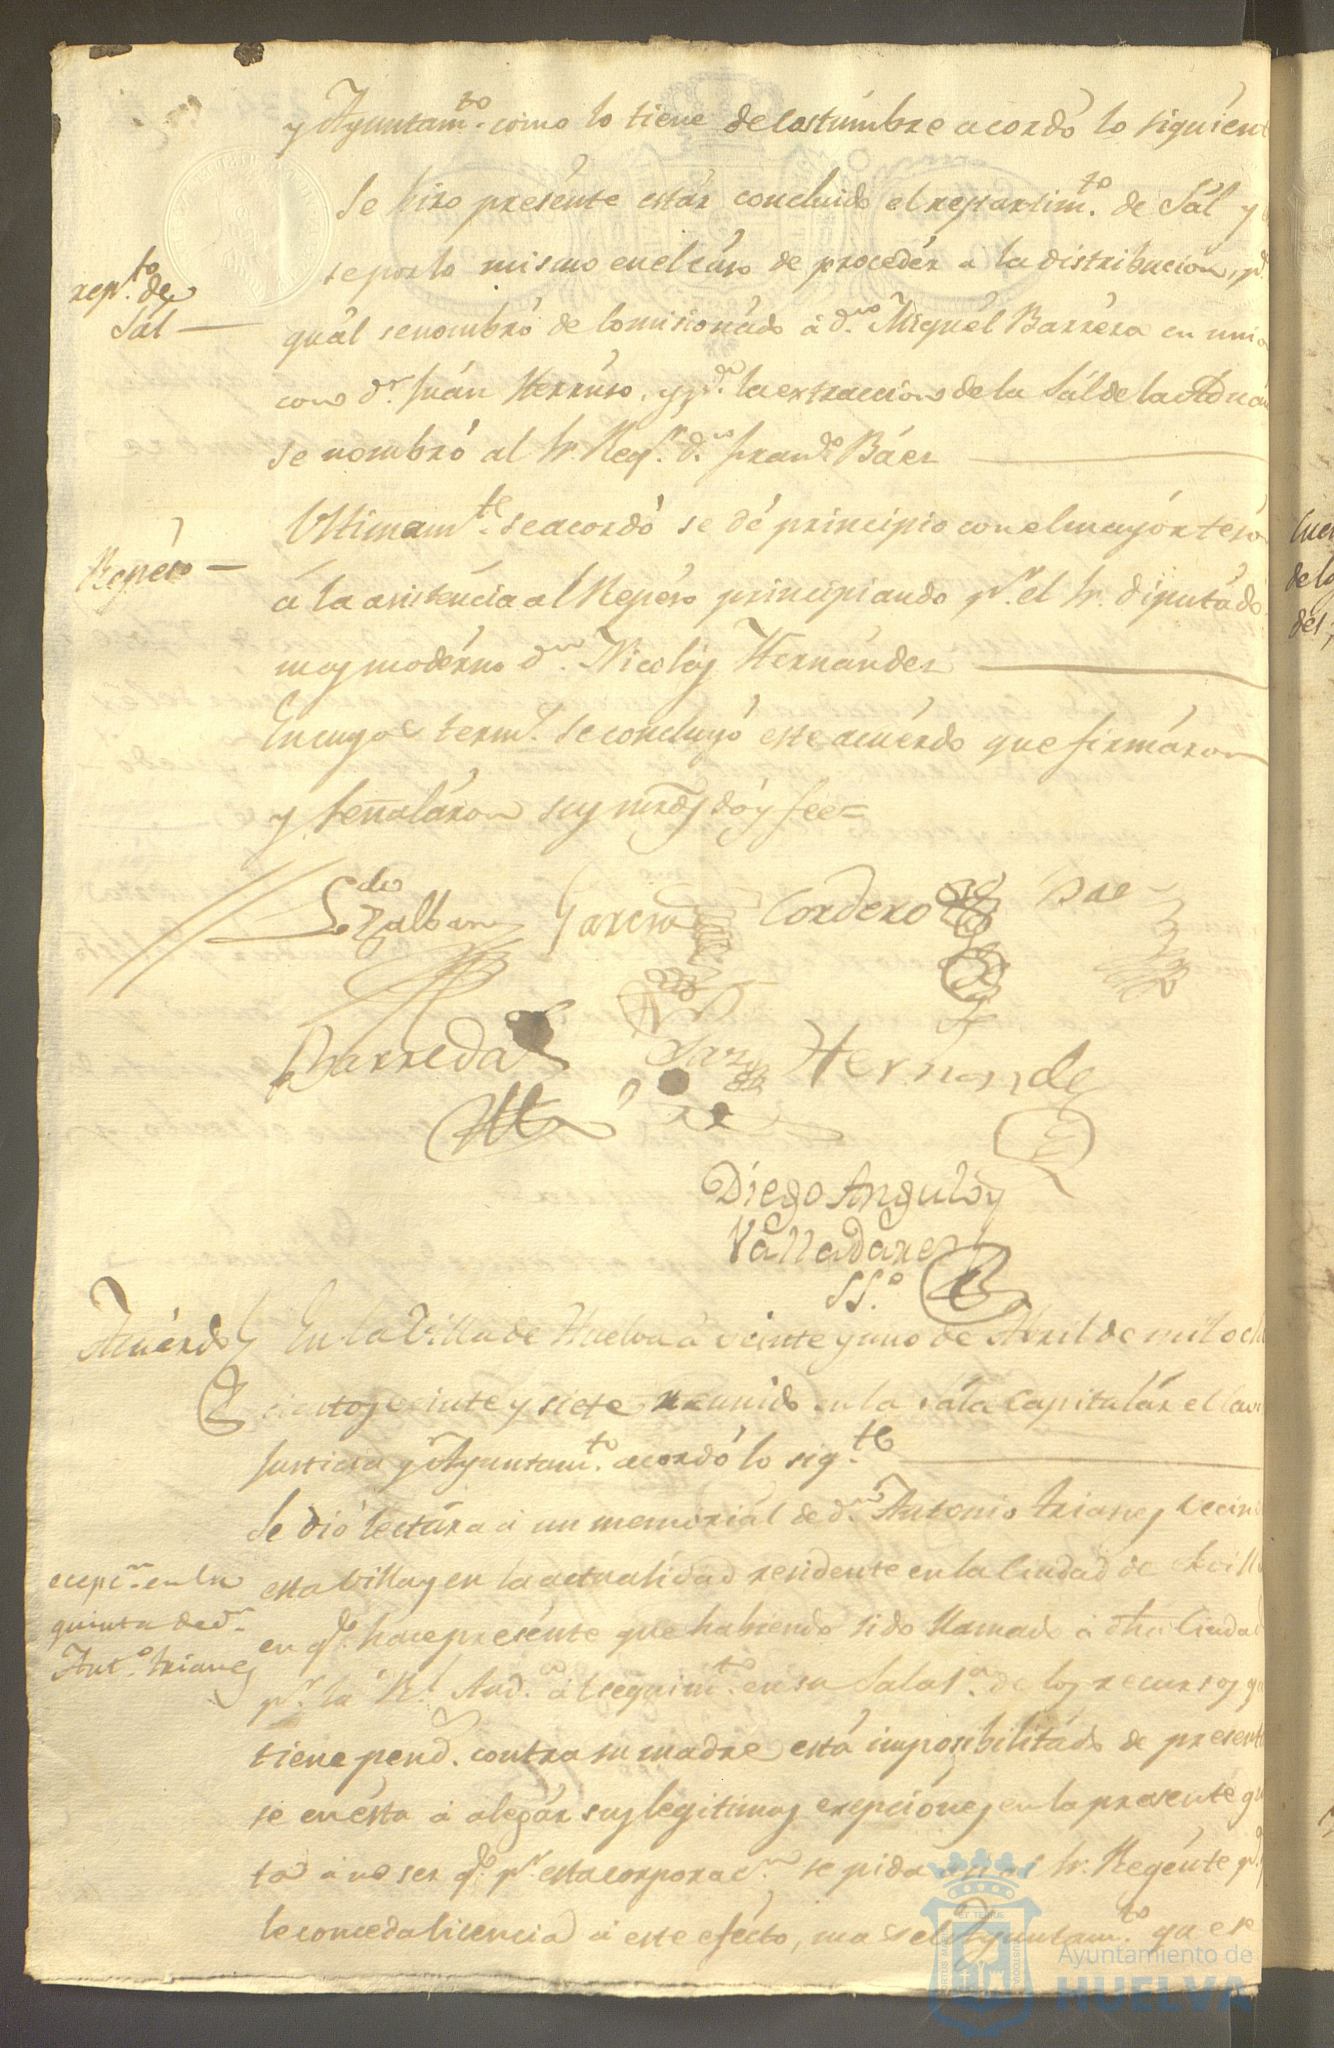 y Ayuntam.to como lo tiene de costumbre acordó lo siguient
Se hizo presente estár concluido el repartim.to de Sál y
se por lo mismo en el cáso de procedér a la distribucion, p.a
rep.to de
Sál —
quál se nombró de Comisionádo á d.n Miguél Barréra en unio
con d.n Juán Herruso, y p.a la extraccion de la Sál de la Aduan
se nombró al Sr. Reg.r d.n Fran.co Báez
Ultimam.te se acordó se dé principio con el mayór tesón
Repéso —
á la asisténcia al Repéso principiando p.r el Sr. diputádo
mas modérno d.n Nicolás Hernández
En cuyos term.s se concluyó este acuérdo que firmáron
y señaláron sus mrds dóy fee=
L.do Garcia Cordero Bae
Barreda Hernandez
Diego Angulo y
Valladares
SS.o
Acuérdo En la Villa de Huelva á veinte y uno de Abril de mil och
cientos veinte y siete reunido en la sála Capitulár el
Justicia y Ayuntam.to acordó lo sig.te
Se dió lectúra á un memoriál de d.n Antonio Trianes Vecin
ecepc.n en la
quinta de d.n
Ant.o Trianes
esta Villa y en la actualidad residente en la Ciudad de Sevill
en q.e hace presénte que habiendo sido llamado á dha Ciudad
p.r la R.l Aud.a al seguim.to en su Sala 1.a de los recursos q
tiene pend. contra su madre está imposibilitádo de present
se en ésta á alegár sus legitimas excepciónes en la presente qu
ta á no ser q.e p.r esta corporac.n se pida Sr. Regénte p.a
le conceda licencia á este efécto, el Ayuntam.to
Ayuntamiento de
HUELVA